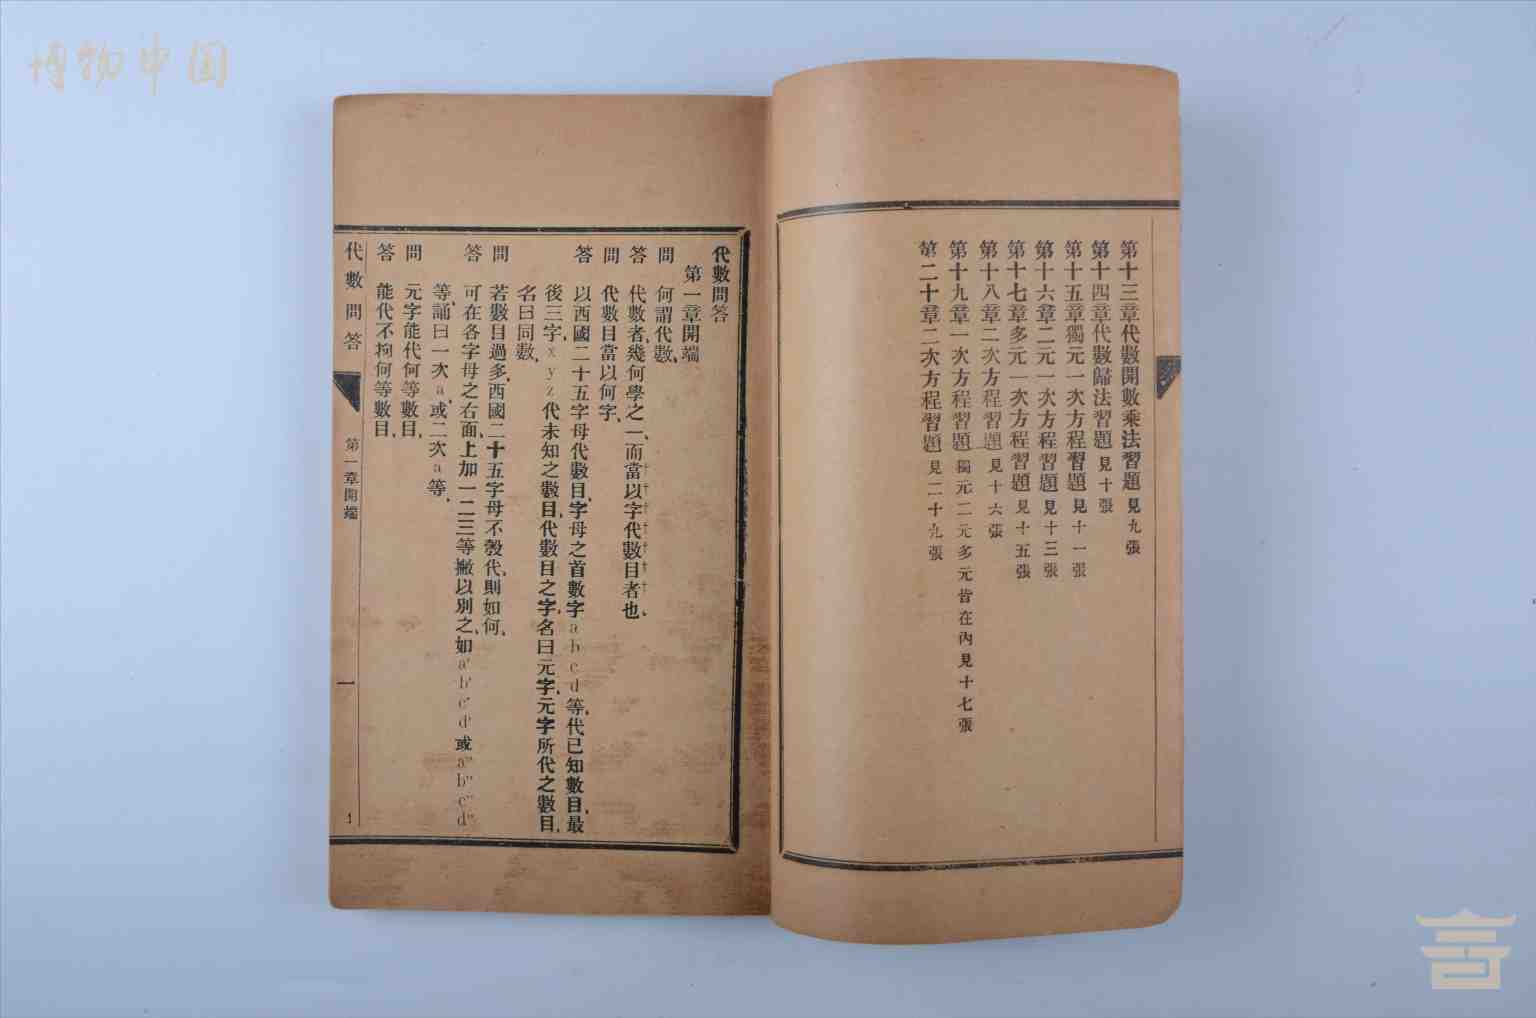 博物中国
第十三章代數開數乘法習題見九張
第十四章代數歸法習題見十張
第十五章獨元一次方程習題見十一張
第十六章二元一次方程習題見十三張
第十七章多元一次方程習題見十五張
第十八章二次方程習題見十六張
第十九章一次方程習題獨元二元多元皆在內見十七張
第二十章二次方程習題見二十九張
代數問答
第一章開端
問 何謂代數、
答 代數者、幾何學之一、而當以字代數目者也、
問 代數目當以何字、
答 以西國二十五字母代數目、字母之首數字a b c d等、代已知數目、最
後三字、x y z代未知之數目、代數目之字、名曰元字、元字所代之數目、
名曰同數、
問 若數目過多、西國二十五字母不彀代、則如何、
答 可在各字母之右面、上加一二三等撇以別之、如a' b' c' d'或a'' b'' c'' d''
等、誦曰一次a、或二次a等、
問 元字能代何等數目、
答 能代不拘何等數目、
代數問答 第一章開端 一 1